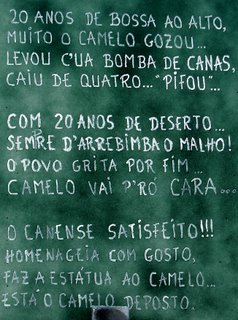 20 ANOS DE BOSSA AO ALTO,
MUITO O CAMELO GOZOU...
LEVOU C'UA BOMBA DE CANAS,
CAIU DE QUATRO..."PIFOU"...
COM 20 ANOS DE DESERTO...
SEMPRE D'ARREBIMBA O MALHO!
O POVO GRITA POR FIM...
CAMELO VAI P'RÓ CARA...
O CANENSE SATISFEITO!!!
HOMENAGEIA COM GOSTO,
FAZ A ESTÁTUA AO CAMELO...
ESTÁ O CAMELO DEPOSTO.